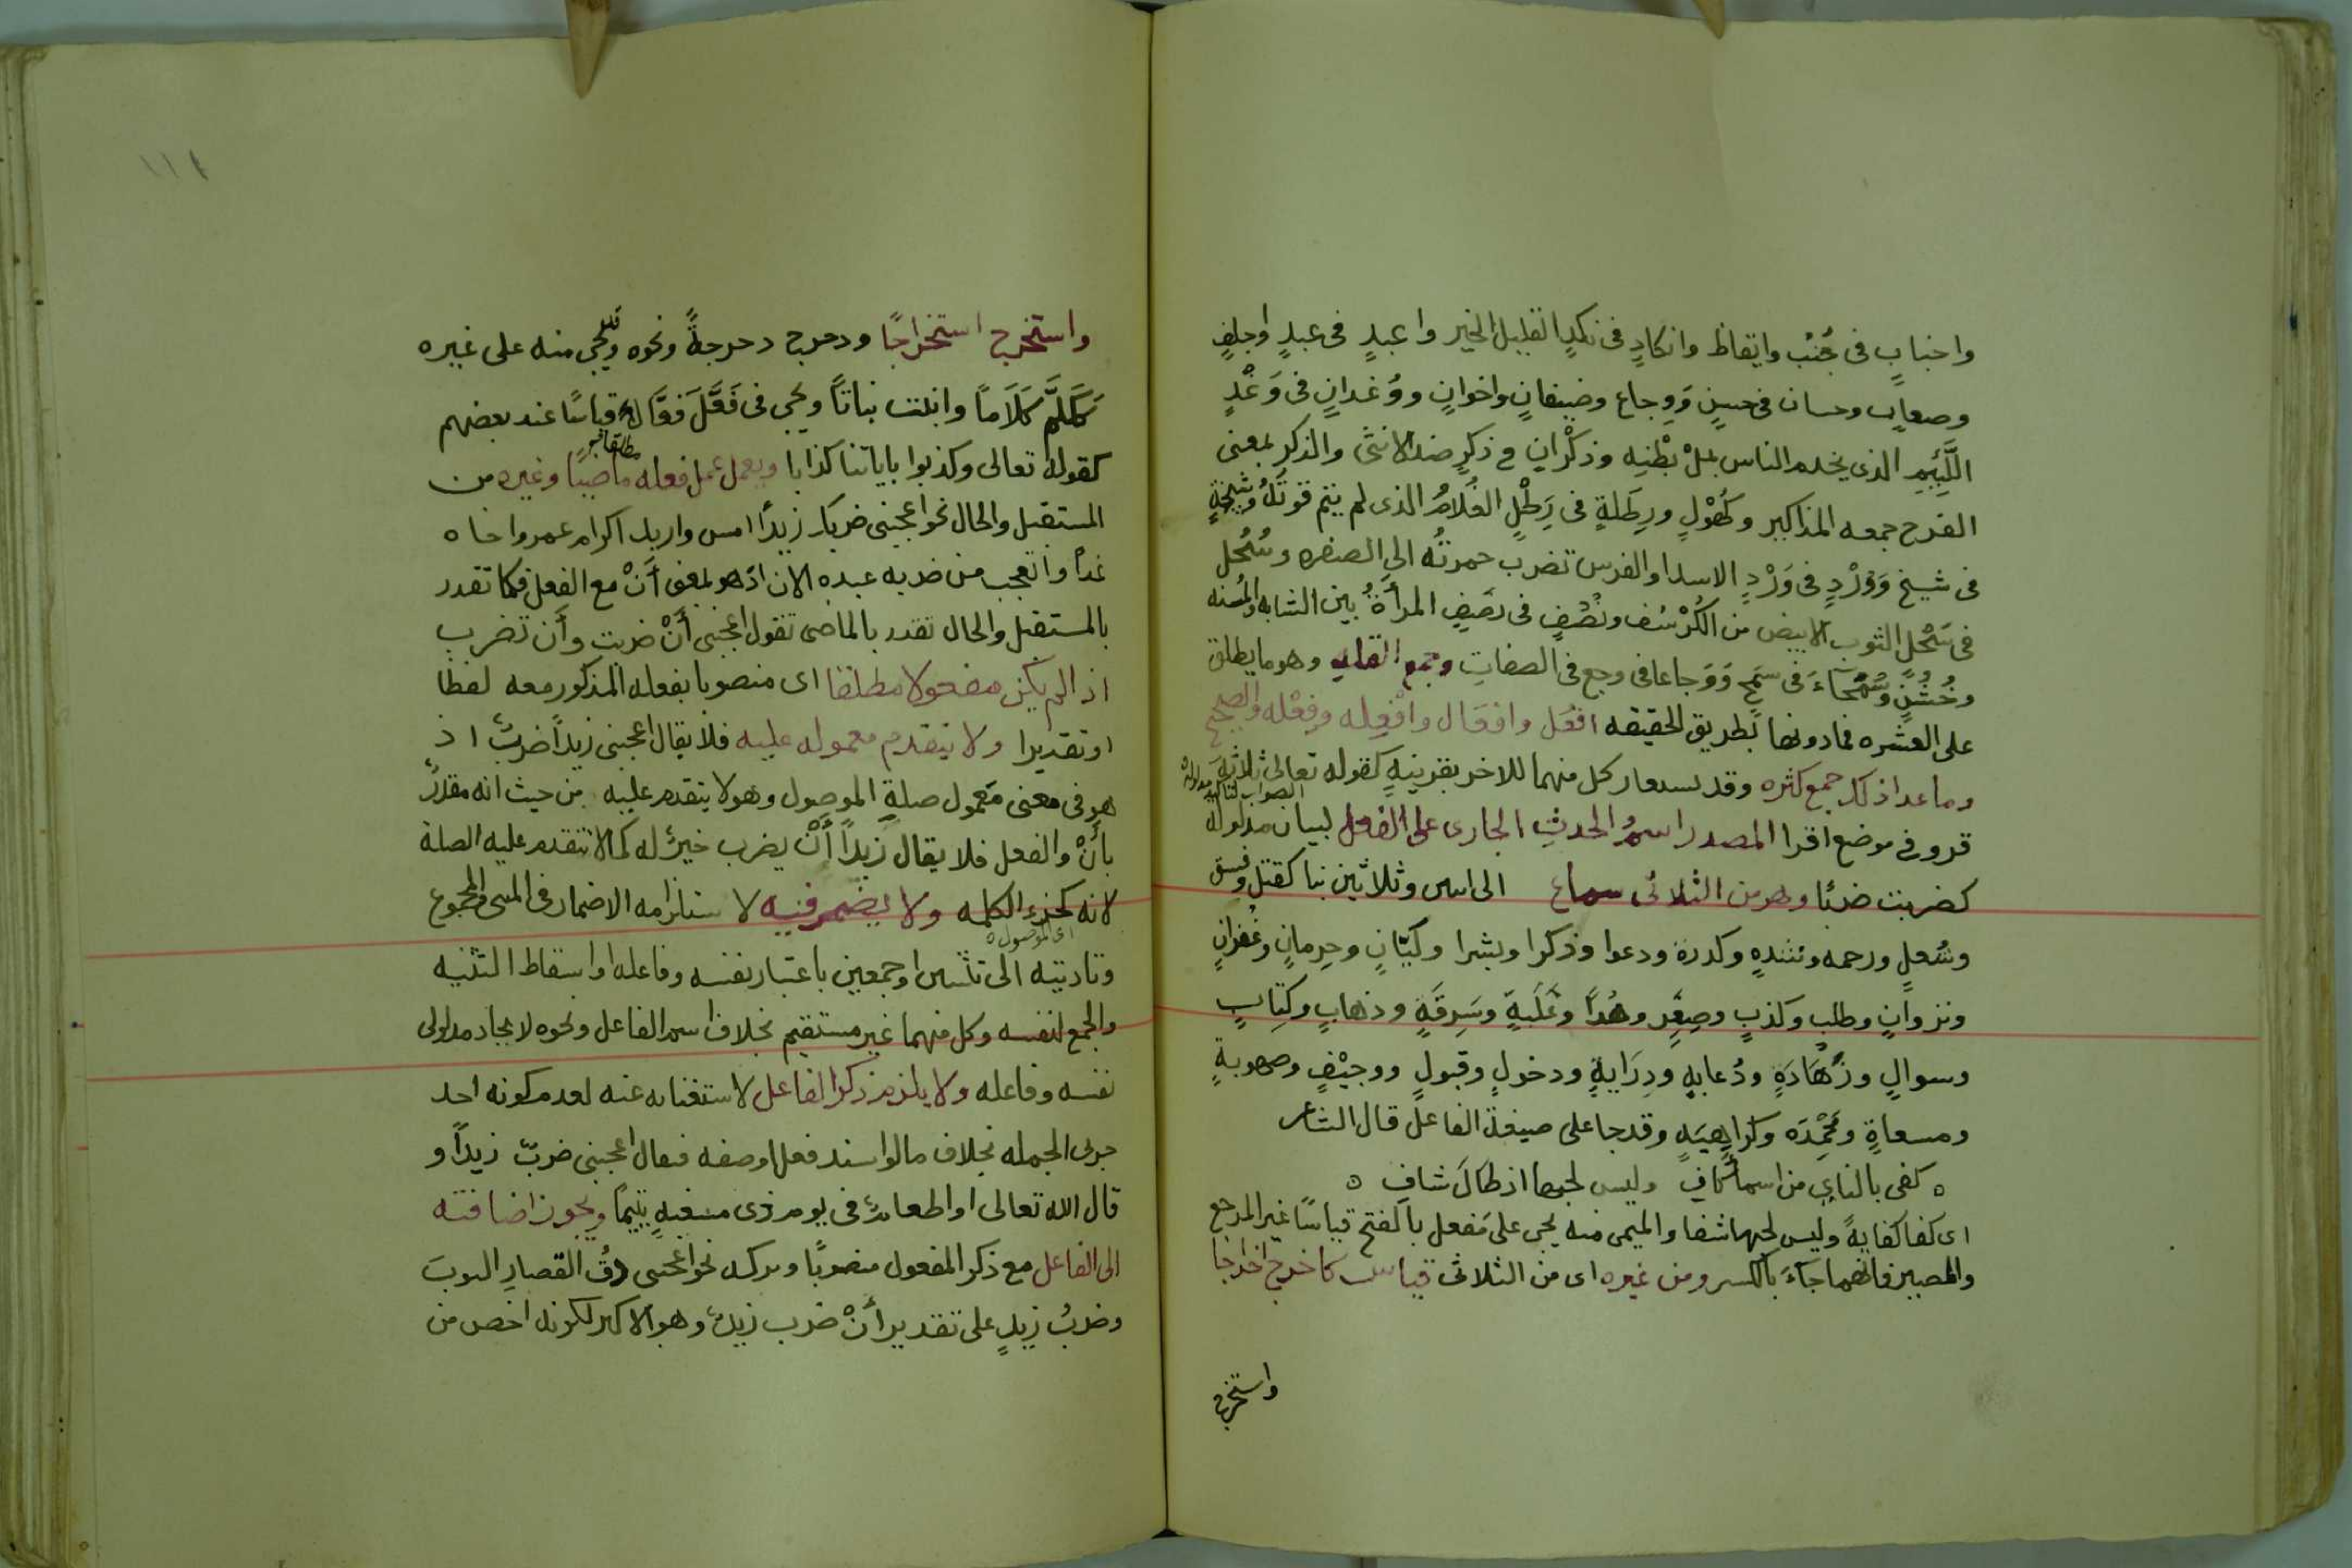 واجنابٍ فى جُنُب وايقاظ وانكادٍ فى نكدٍ القليل الخير واعبدٍ فى عبدٍ واجلفٍ
وصعاب وحسان فى حسنٍ وَوِجاع وضيفانٍ واخوانٍ ووُغدانٍ فى وَغْدٍ
اللَّئِيمِ الذى يخدم الناس بملْ بطْنِهِ وذكْرانٍ فى ذكرٍ ضد الانثى والذكر بمعنى
الفرج جمعه المذاكير وكُهُوْلٍ ورِطَلةٍ فى رِطْلٍ الغُلامُ الذى لم يتم قوتُهُ وشِيخةٍ
فى شيخ وَوُرْدٍ فى وَرْدٍ الاسد او الفرس تضرب حمرتُه الى الصفره وسُحُل
فى سَحْلٍ الثوب الابيض من الكُرْسُف ونُصُفٍ فى نصَفٍ المرأةُ بين الشابه والمُسِنه
وخُشُنٍ وسُمَحَآءَ فى سَمْحٍ وَوَجاعا فى وجع فى الصفاتِ وجمع القله وهو ما يطلق
على العشره فما دونها بطريق الحقيقه افعُل وافعَال وافْعِله وفِعْله والصحيح
وما عدا ذلك جمع كثره وقد يستعار كل منهما للاخر بقرينةٍ كقوله تعالى ثلاثةَ
قروء فى موضع اقرا المصدر اسمُ الحدثِ الجارى على الفعل لبيان مدلوله
كضربت ضربًا وهو من الثلاثى سماع الى اسى وثلاثين بنا كقتل وفسق
وشُغلٍ ورحمه ونشدهٍ وكدرة ودعوا وذكرا وبشرا وليّانٍ وحِرمانٍ وغُفرانٍ
ونزوانٍ وطلبٍ وكذبٍ وصِغَرٍ وهُدًا وغَلَبةٍ وسَرِقَةٍ وذهابٍ وكتِابٍ
وسوالٍ وزَهَادَةٍ ودُعابهٍ ودِرَايةٍ ودخولٍ وقبولٍ ووجيْفٍ وصهوبةٍ
ومسعاةٍ ومَحْمِدَه وكراهِيَهٍ وقد جا على صيغة الفاعل قال الشاعر
ه كفى بالناىِ من اسمآ كافٍ وليس لحبها اذ طالَ شافٍ ه
اى كفا كفايةً وليس لحبها شفا والميمى منه يجى على مَفعل بالفتح قياسًا غير المرجع
والمصير فانهما جآءَ بالكسر ومن غيره اى من الثلاثى قياس كاخرج اخراجا
واستخرج
واستخرج استخراجًا ودحرج دحرجةً ونحوه وقد يجى منه على غيره
كَكَلَّمَ كَلَامًا وانبتت نباتًا ويجى فى فَعَّلَ فِعَّالٌ قياسًا عند بعضهم
كقوله تعالى وكذبوا باياتنا كذابا ويعمل عمل فعله ماضيًا وغيره من
المستقبل والحال نحو اعجبنى ضربك زيدًا امس واريد اكرام عمرو اخاه
غدًا واتعجب من ضربه عبده الان اذ هو بمعنى أنْ مع الفعل فكما تقدر
بالمستقبل والحال تقدر بالماضى تقول اعجبنى أنْ ضربت وأن تضرب
اذا لم يكن مفعولا مطلقا اى منصوبا بفعله المذكور معه لفظا
او تقديرا ولا يتقدم معموله عليه فلا يقال اعجبنى زيدًا ضربٌ اذ
هو فى معنى مَعمول صلةِ الموصول وهو لا يتقدم عليه من حيث انه مقدرٌ
بأنْ والفعل فلا يقال زيدًا أنْ يضرب خيرٌ له كما لا تتقدم عليه الصلة
لانه كجزء الكلمه ولا يضمر فيه لاستلزامه الاضمار فى المثنى والمجموع
اى الموصول
وتاديته الى تثنيتين او جمعين باعتبار نفسه وفاعله او اسقاط التثنيه
والجمع لنفسه وكل منهما غير مستقيم بخلاف اسم الفاعل ونحوه لاتحاد مدلولى
نفسه وفاعله ولا يلزم ذكر الفاعل لاستغنايه عنه لعدم كونه احد
جزئى الجمله بخلاف ما لو اسند فعل او صفه فيقال اعجبنى ضربٌ زيدًا و
قال الله تعالى او اطعامٌ فى يوم ذى مسغبهٍ يتيمًا ويجوز اضافته
الى الفاعل مع ذكر المفعول منصوبًا وتركه نحو اعجبنى دقُ القصارِ الثوبَ
وضربُ زيدٍ على تقدير أنْ ضرب زيدٌ وهو الاكثر لكونه اخص من